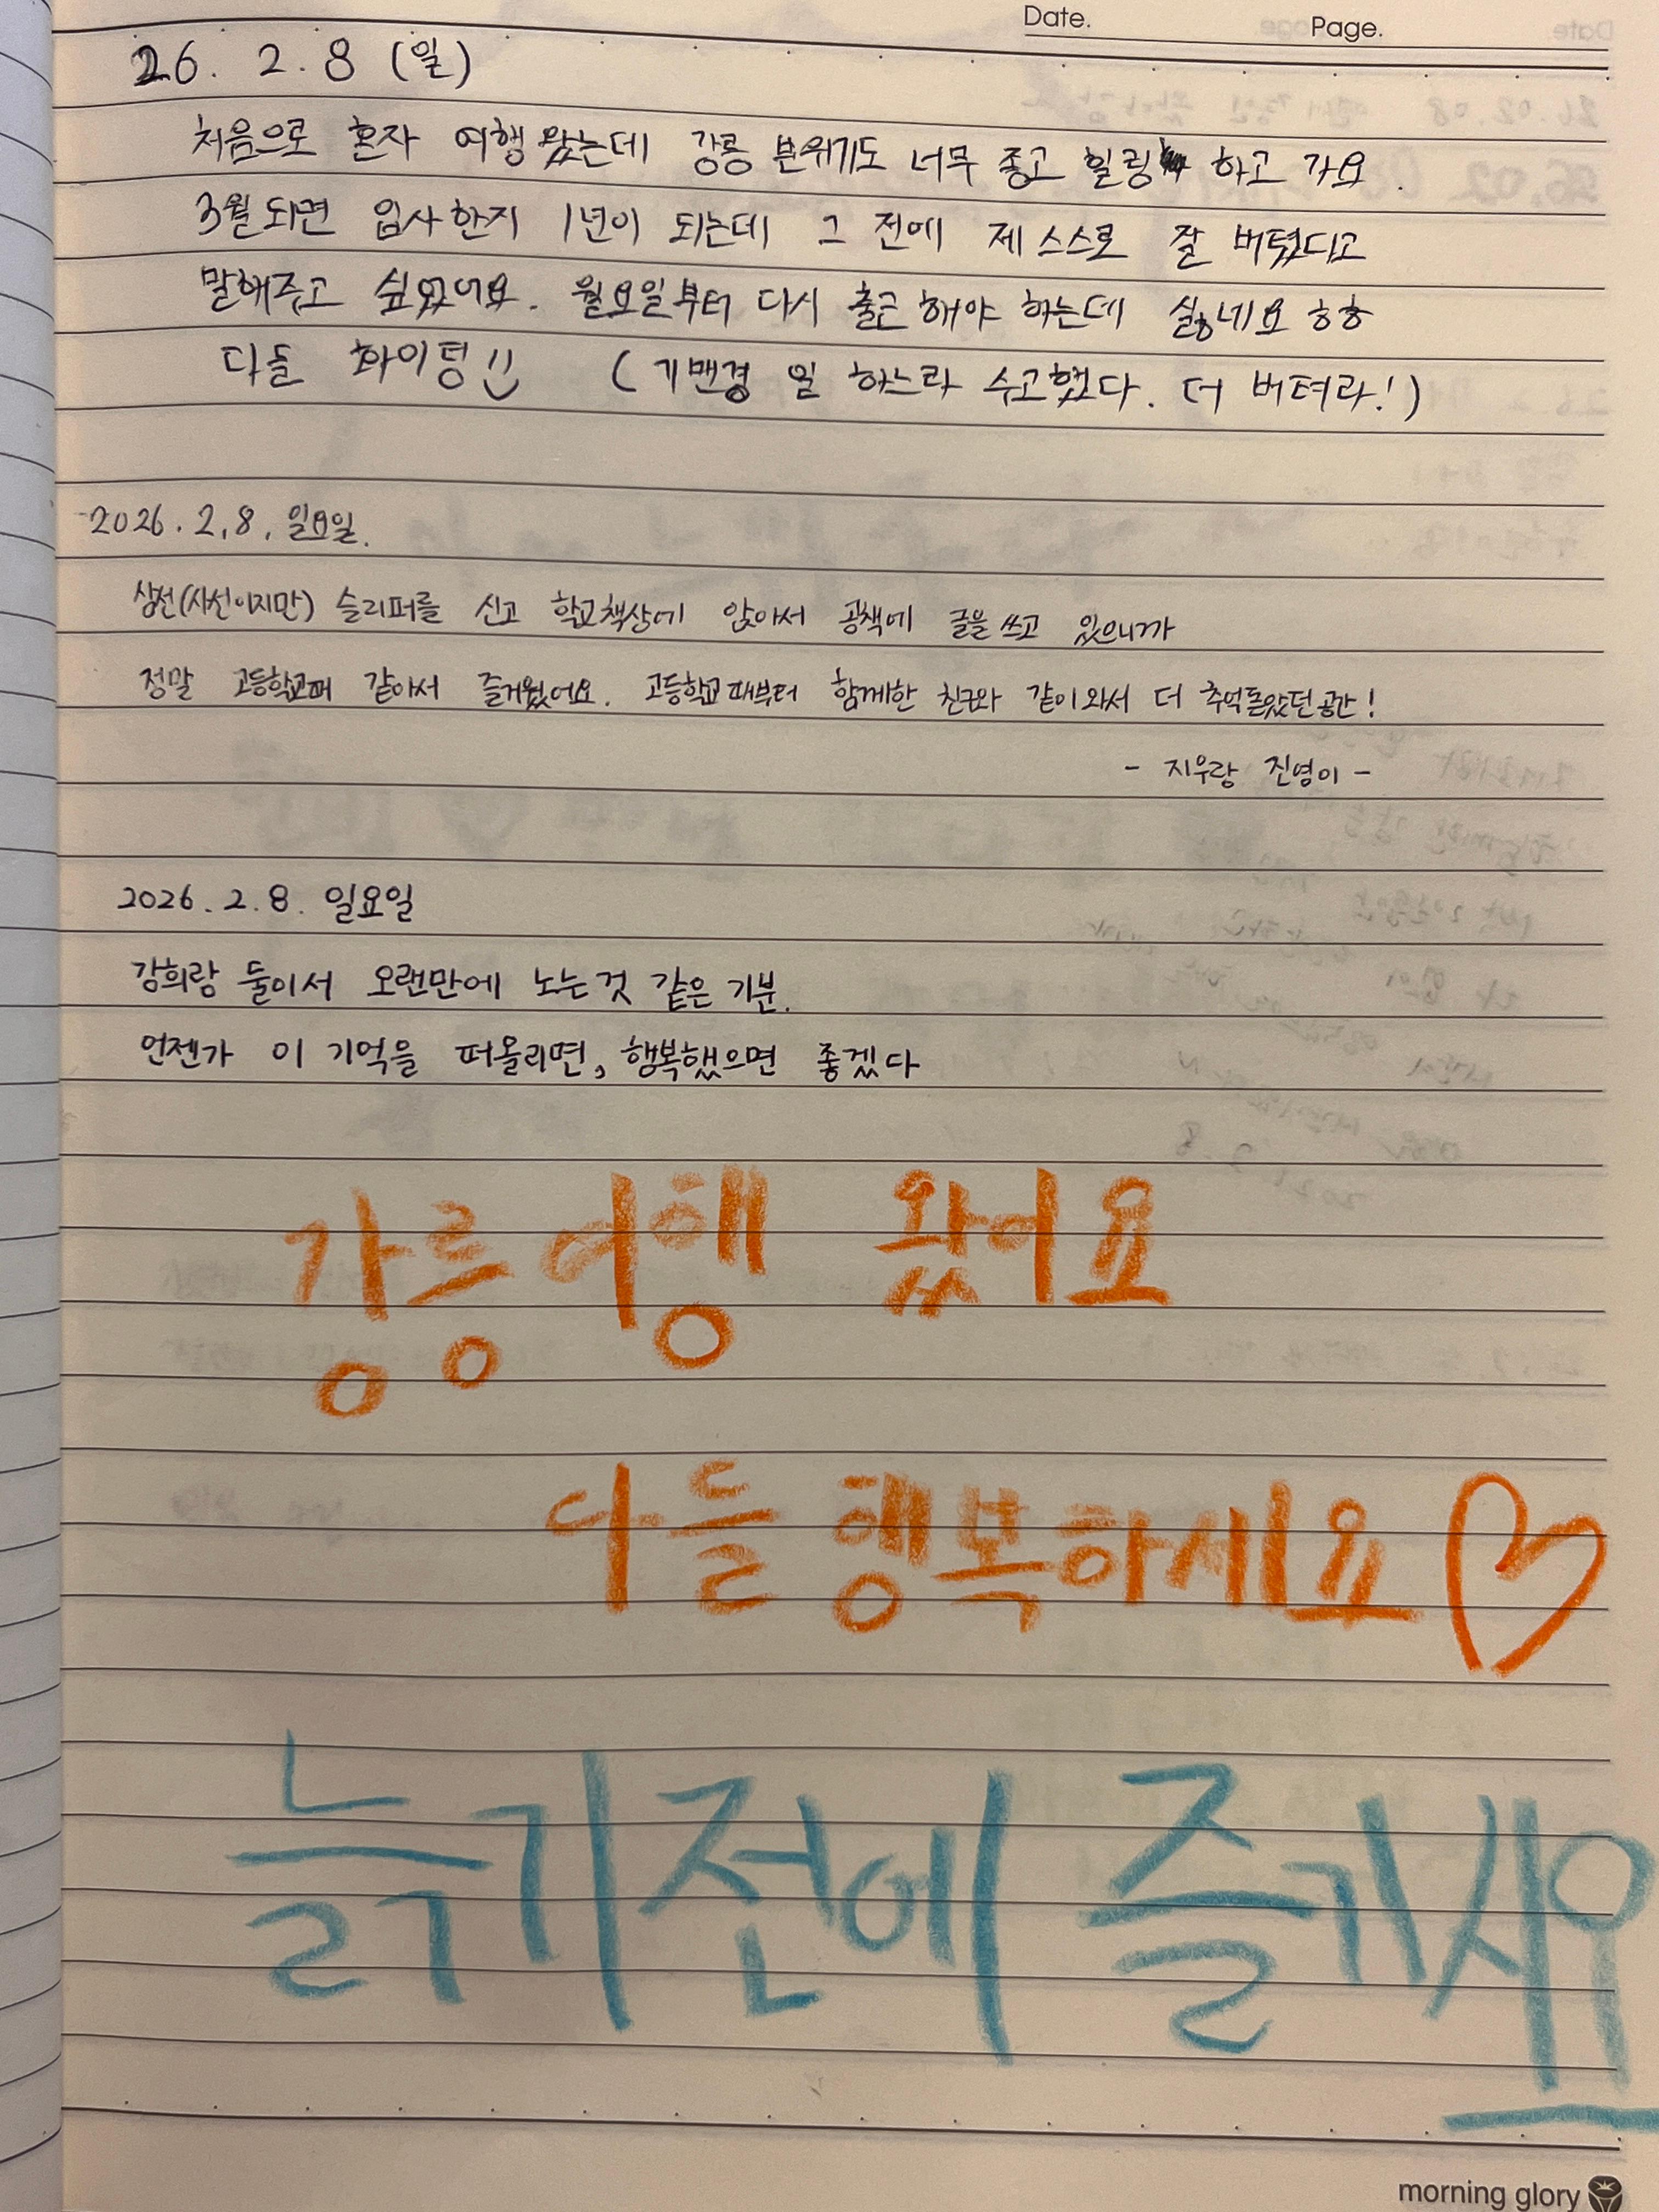 Date. Page.
26. 2. 8 (일)
처음으로 혼자 여행 왔는데 강릉 분위기도 너무 좋고 힐링 하고 가요.
3월되면 입사한지 1년이 되는데 그 전에 제 스스로 잘 버텼다고
말해주고 싶었어요. 월요일부터 다시 출근해야 하는데 싫네요 ㅎㅎ
다들 화이팅 (기맨경 일 하느라 수고했다. 더 버텨라!)
2026. 2. 8. 일요일.
삼선(사선이지만) 슬리퍼를 신고 학교책상에 앉아서 공책에 글을 쓰고 있으니까
정말 고등학교때 같아서 즐거웠어요. 고등학교때부터 함께한 친구와 같이와서 더 추억돋았던공간!
- 지우랑 진영이 -
2026. 2. 8. 일요일
강희랑 둘이서 오랜만에 노는것 같은 기분.
언젠가 이 기억을 떠올리면, 행복했으면 좋겠다
강릉여행 왔어요
다들 행복하세요♡
늙기전에 즐기세요
morning glory